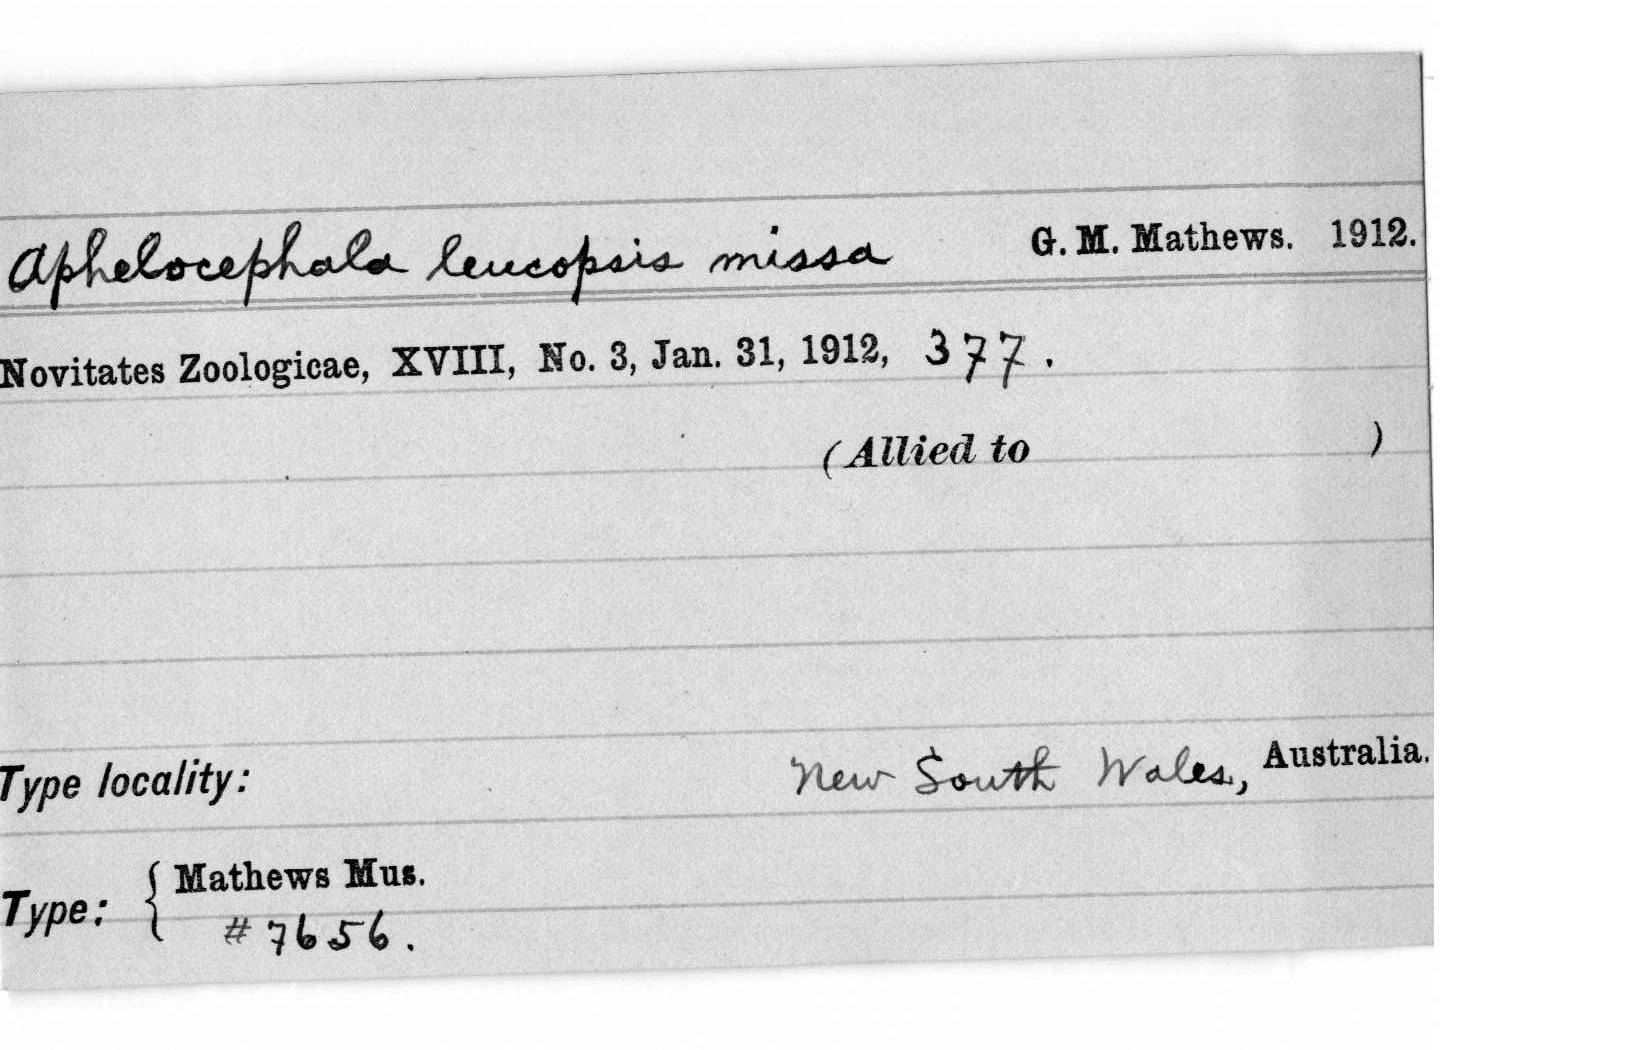 Aphelocephala leucopsis missa G. M. Mathews. 1912.
Novitates Zoologicae, XVIII, No. 3, Jan. 31, 1912, 377.
(Allied to )
Type locality: New South Wales, Australia.
Type: { Mathews Mus.
# 7656.